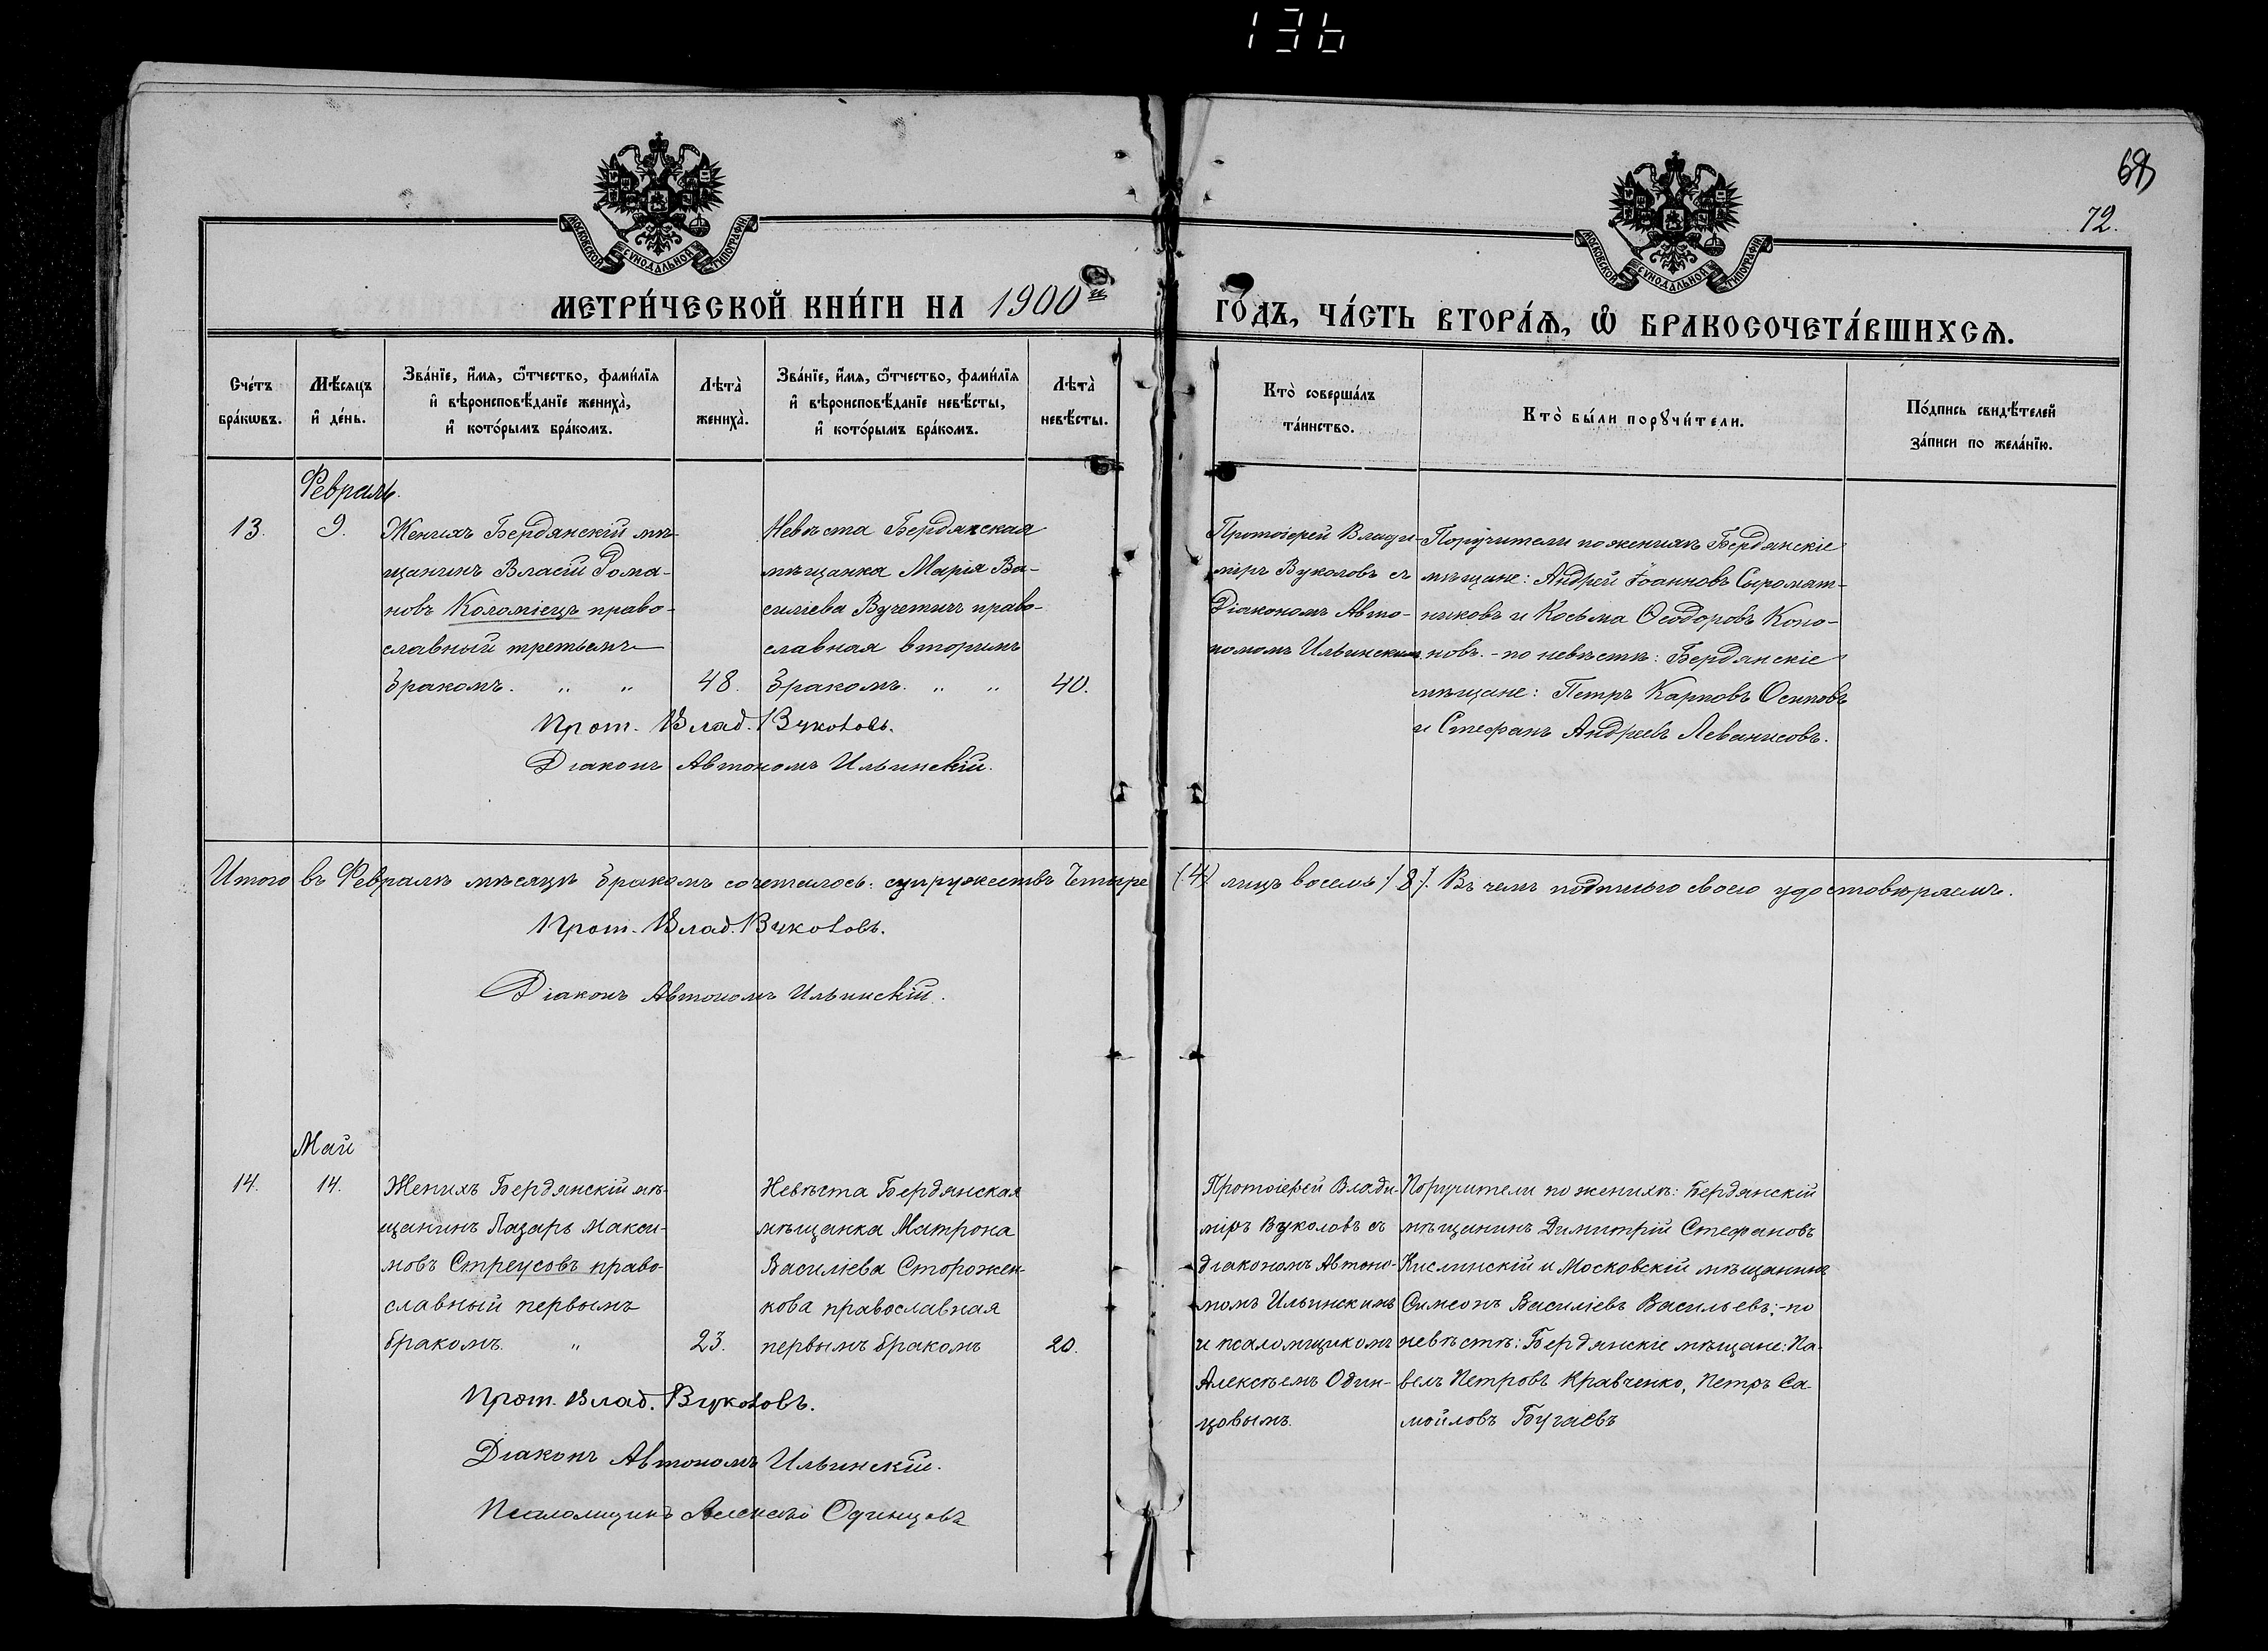 136
69
72.
МОСКОВСКОЙ СѴНОДАЛЬНОЙ ТИПОГРАФІИ
МОСКОВСКОЙ СѴНОДАЛЬНОЙ ТИПОГРАФІИ
МЕТРИ́ЧЕСКОЙ КНИ́ГИ НА 1900й ГО́ДЪ, ЧА́СТЬ ВТОРА́Ѧ, Ѽ БРАКОСОЧЕТА́ВШИХСѦ.
Сче́тъ бра́кѡвъ.
Мѣ́сяцъ и҆ де́нь.
Зва́нїе, и҆́мя, ѻ҆́тчество, фами́лїя
и҆ вѣроисповѣ́данїе жениха̀,
и҆ кото́рымъ бра́комъ.
Лѣта̀ жениха̀.
Зва́нїе, и҆́мя, ѻ҆́тчество, фами́лїя
и҆ вѣроисповѣ́данїе невѣ́сты,
и҆ кото́рымъ бра́комъ.
Лѣта̀ невѣ́сты.
Кто̀ соверша́лъ та́инство.
Кто̀ бы́ли порꙋчи́тели.
По́дпись свидѣ́телей за́писи по жела́нїю.
Февраль.
13.
9.
Женихъ Бердянскій мѣ-
щанинъ Власій Рома-
новъ Коломіецъ право-
славный третьимъ
бракомъ. " "
48.
Невѣста Бердянская
мѣщанка Марія Ва-
силіева Вучетичъ право-
славная вторымъ
бракомъ. " "
40.
Протоіерей Влади-
міръ Вуколовъ съ
Діакономъ Авто-
номомъ Ильинскимъ
Поручители по женихѣ Бердянскіе
мѣщане: Андрей Іоанновъ Сыромят-
никовъ и Косьма Ѳеодоровъ Коно-
новъ. - по невѣстѣ: Бердянскіе
мѣщане: Петръ Карповъ Осиповъ
и Стефанъ Андреевъ Леванисовъ.
Прот. Влад. Вуколовъ.
Діаконъ Автономъ Ильинскій.
Итого въ Февралѣ мѣсяцѣ бракомъ сочеталось: супружествъ Четыре (4) лицъ восемь /8/. Въ чемъ подписью своею удостовѣряемъ.
Прот. Влад. Вуколовъ.
Діаконъ Автономъ Ильинскій.
Май
14.
14.
Женихъ Бердянскій мѣ-
щанинъ Лазарь Макси-
мовъ Стреусовъ право-
славный первымъ
бракомъ. "
23.
Невѣста Бердянская
мѣщанка Матрона
Василіева Сторожен-
кова православная
первымъ бракомъ
20.
Протоіерей Влади-
міръ Вуколовъ съ
діакономъ Автоно-
момъ Ильинскимъ
и псаломщикомъ
Алексѣемъ Один-
цовымъ.
Поручители по женихѣ: Бердянскій
мѣщанинъ Димитрій Стефановъ
Кислинскій и Московскій мѣщанинъ
Симеонъ Василіевъ Васильевъ; - по
невѣстѣ: Бердянскіе мѣщане: Па-
велъ Петровъ Кравченко, Петръ Са-
мойловъ Бугаевъ
Прот. Влад. Вуколовъ.
Діаконъ Автономъ Ильинскій.
Псаломщикъ Алексѣй Одинцовъ